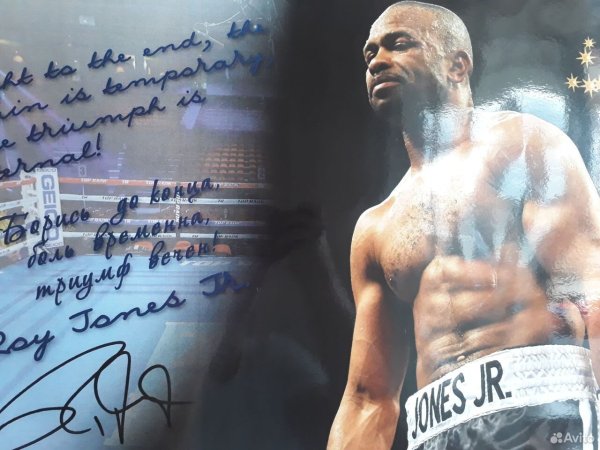 ght to the end, the
ain is temporary,
e triumph is
ernal!
Борись до конца,
боль временна,
триумф вечен!
Roy Jones Jr.
JONES JR.
Avito